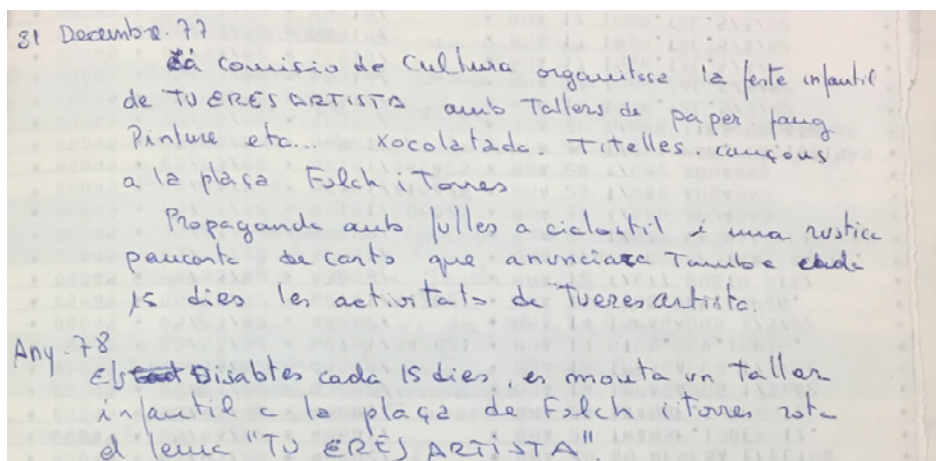 31 Decembre. 77
La comisio de Cultura organitsse la feste infantil
de TU ERES ARTISTA amb Tallers de paper fang
Pinture etc... Xocolatada. Titelles. cançons
a la plaça Folch i Torres
Propaganda amb fulles a ciclostil i una rustica
pancarta de carto que anunciara Tambe cada
15 dies les activitats de Tueres artista.
Any. 78
Els Disabtes cada 15 dies, es monta un taller
infantil a la plaça de Folch i torres sota
el lema "TU ERES ARTISTA".